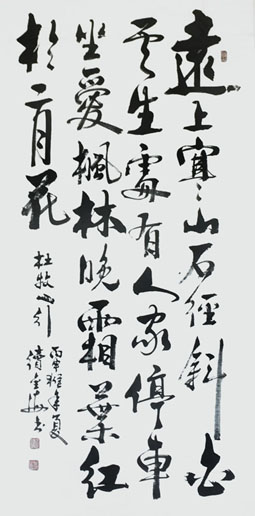 遠上寒山石徑斜白
云生處有人家停車
坐愛楓林晚霜葉紅
於二月花
杜牧山行
丙申猴年夏
金海书